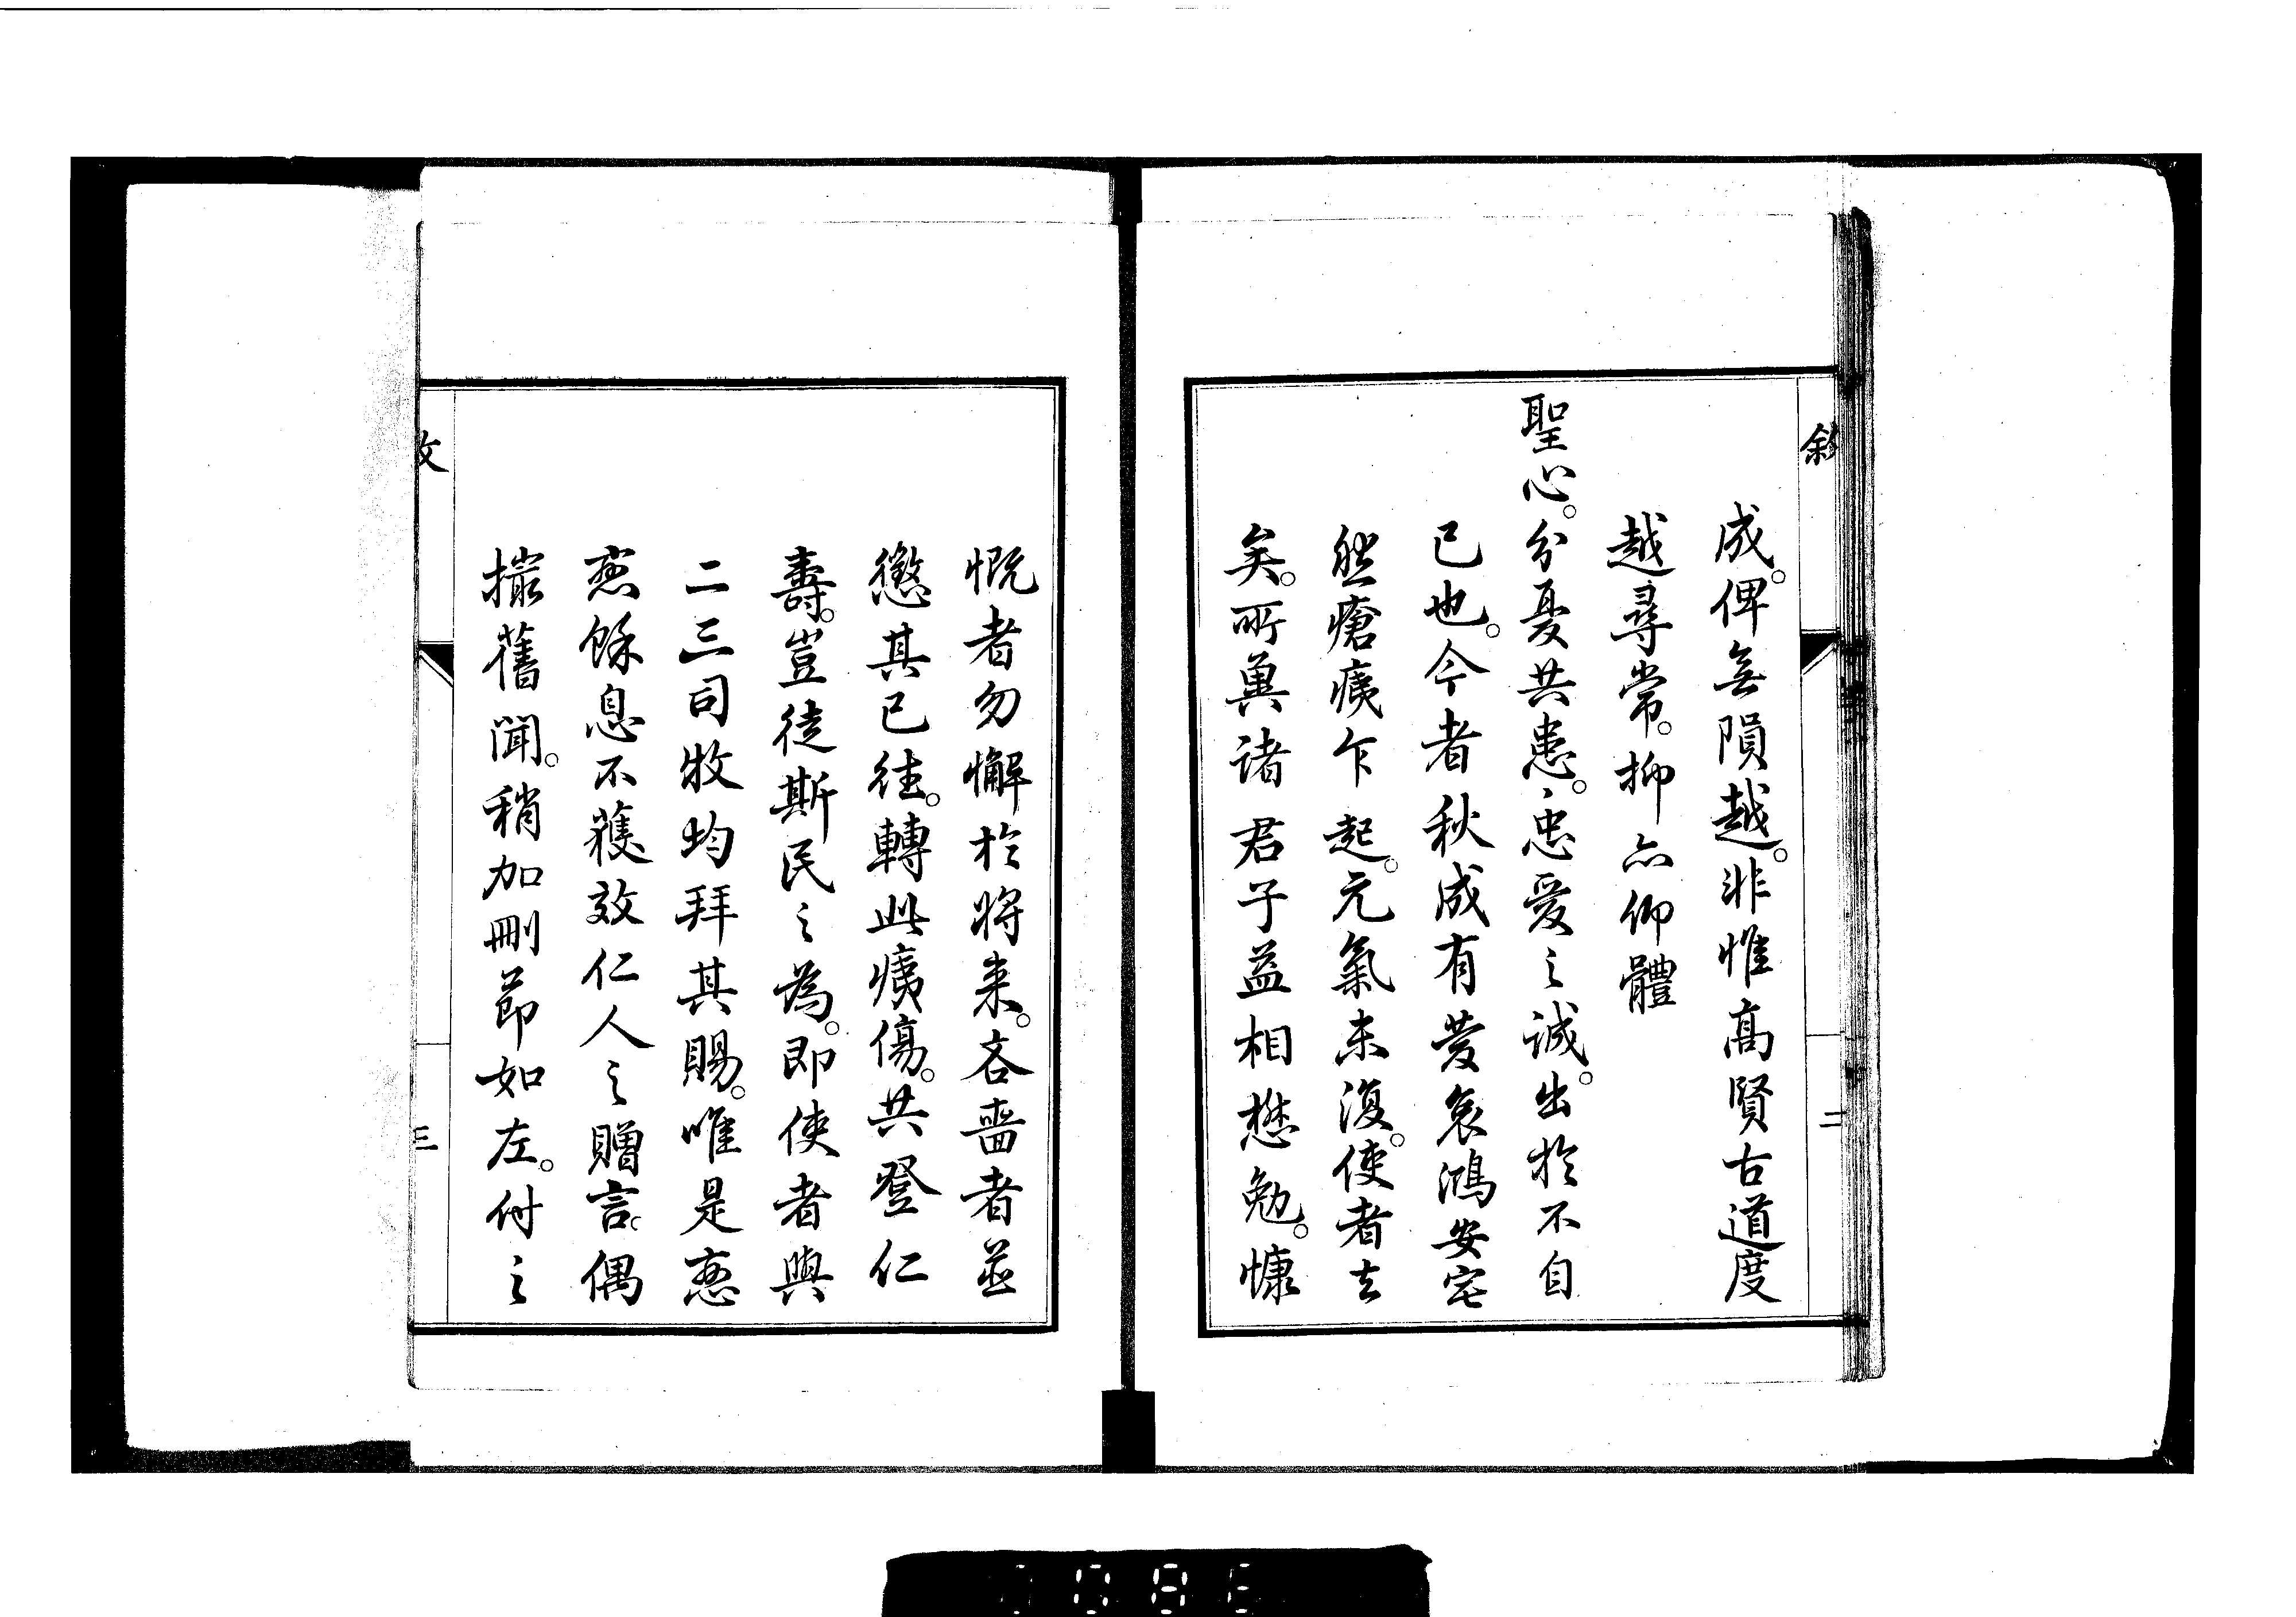 敘
二
成。俾無隕越。非惟高賢古道度
越尋常。抑亦仰體
聖心。分憂共患。、忠愛之誠。出於不自
已也。今者秋成有慶哀鴻安宅
然瘡痍乍起。元氣未復。使者去
矣。所冀諸君子益相懋勉。慷
慨者勿懈於將来。吝嗇者並
懲其已往。轉此痍傷。共登仁
壽。豈徒斯民之為。即使者與
二三司牧均拜其賜。唯是憊
憊餘息不獲效仁人之贈言。偶
撮舊聞。稍加刪節如左。付之
三